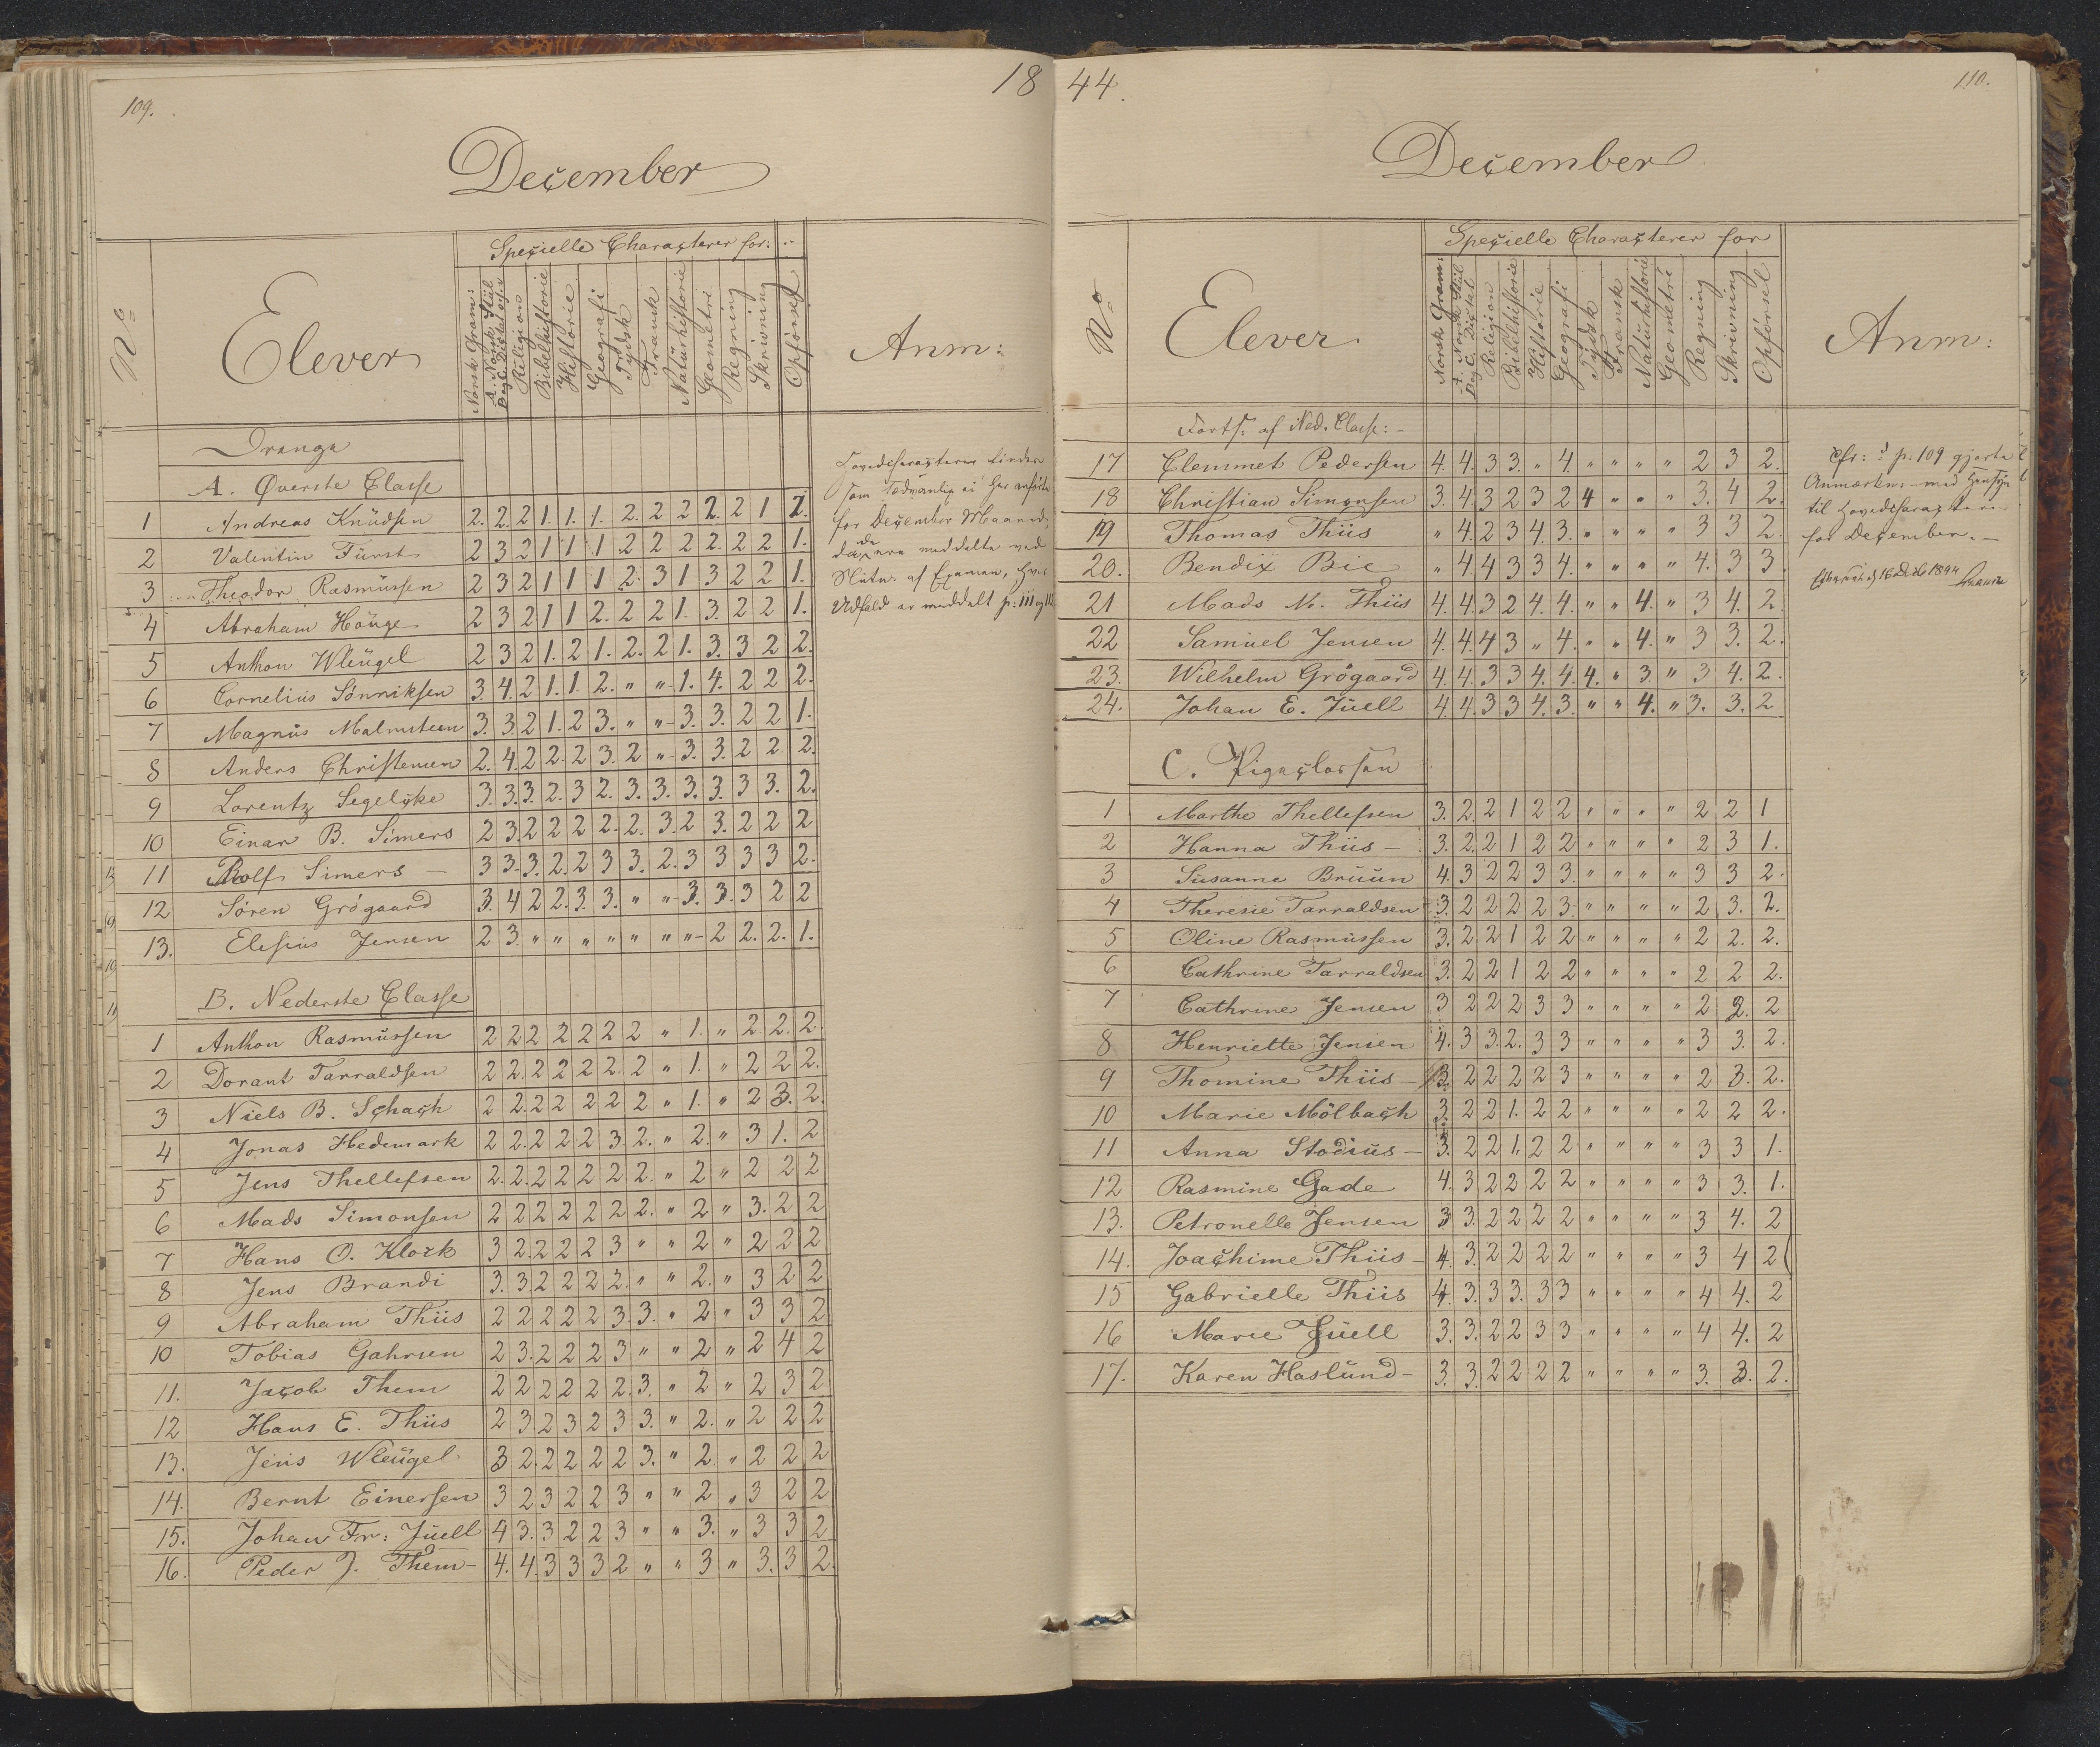 109.
18
December
No
Elever
Specielle Characterer for:
Norsk Gram:
A. Norsk Stiil
B og C. Dictat
Religion
Bibelhistorie
Historie
Geografi
Tydsk
Fransk
Naturhistorie
Geometri
Regning
Skrivning
Opförsel
Anm:
Drenge
A. Øverste Classe
1 Andreas Knudsen 2. 2. 2 1. 1. 1. 2. 2 2 2. 2 1 1.
2 Valentin Fürst 2 3 2 1 1 1 2 2 2 2. 2 2 1.
3 Theodor Rasmussen 2 3 2 1 1 1 2. 3 1 3 2 2 1.
4 Abraham Houge 2 3 2 1 1 2. 2 2 1. 3. 2 2 1.
5 Anthon Wleugel 2 3 2 1. 2 1. 2. 2 1. 3. 3 2 2.
6 Cornelius Sönniksen 3. 4. 2 1. 1. 2. " " 1. 4. 2 2 2.
7 Magnus Malmsteen 3. 3. 2 1. 2 3. " " 3. 3. 2 2 1.
8 Anders Christensen 2. 4. 2 2. 2 3. 2 " 3. 3. 2 2 2.
9 Lorentz Segelcke 3. 3. 3. 2. 3 2. 3. 3. 3. 3. 3 3. 2.
10 Einar B. Simers 2 3. 2 2 2 2. 2. 3. 2 3. 2 2 2
11 Rolf Simers 3 3. 3. 2. 2 3 3. 2. 3 3 3 3 2.
12 Sören Grögaard 3. 4 2 2. 3. 3. " " 3. 3. 3 2 2
13. Elesius Jensen 2 3. " " " " " " " 2 2. 2. 1.
Hovedcharacteren findes
som sædvanlig ei her anförte
for December Maaned,
da de ere meddelte ved
Slutn. af Examen, hvis
Udfald er meddelt p: 111 og 112
B. Nederste Classe
1 Anthon Rasmussen 2 2 2 2 2 2 2 " 1. " 2. 2. 2.
2 Dorant Tarraldsen 2 2. 2 2 2 2. 2 " 1. " 2 2 2.
3 Niels B. Schach 2 2. 2 2 2 2 2 " 1. " 2 3. 2.
4 Jonas Hedemark 2 2. 2 2 2 3 2. " 2. " 3 1. 2
5 Jens Thellefsen 2. 2. 2 2 2 2 2. " 2 " 2 2 2
6 Mads Simonsen 2 2 2 2 2 2 2. " 2 " 3. 2 2
7 Hans O. Klock 3 2. 2 2 2 3 " " 2 " 2 2 2
8 Jens Brandi 3. 3. 2 2 2 2. " " 2. " 3 2 2
9 Abraham Thiis 2 2 2 2 2 3. 3. " 2 " 3 3 2
10 Tobias Gahrsen 2 3. 2 2 2 3 " " 2 " 2 4 2
11. Jacob Them 2 2 2 2 2 2. 3. " 2 " 2 3 2
12 Hans E. Thiis 2 3. 2 3 2 3 3. " 2. " 2 2 2
13. Jens Wleugel 3 2. 2 2 2 2 3. " 2. " 2 2 2
14. Bernt Einersen 3 2 3 2 2 3 " " 2 " 3 2 2
15. Johan Fr: Juell 4 3. 3 2 2 3 " " 3. " 3 3 2
16. Peder J. Them 4. 4. 3 3 3 2 " " 3 " 3. 3 2.
44.
110.
December
No
Elever
Specielle Characterer for
Norsk Gram:
A. Norsk Stiil
B og C. Dictat
Religion
Bibelhistorie
Historie
Geografi
Tydsk
Fransk
Naturhistorie
Geometri
Regning
Skrivning
Opförsel
Anm:
Forts: af Ned. Classe:
17 Clemmet Pedersen 4. 4. 3 3. " 4. " " " " 2 3 2.
18 Christian Simonsen 3. 4. 3 2 3 2 4 " " " 3. 4 2.
19 Thomas Thiis " 4. 2 3 4. 3. " " " " 3 3 2.
20. Bendix Bie " 4 4 3 3 4. " " " " 4. 3 3
21 Mads M. Thiis 4. 4. 3 2 4. 4. " " 4. " 3 4. 2.
22 Samuel Jensen 4. 4. 4 3 " 4. " " 4. " 3 3. 2.
23. Wilhelm Grögaard 4. 4. 3 3 4. 4. 4. " 3. " 3 4. 2.
24. Johan E. Juell 4. 4. 3 3 4. 3. " " 4. " 3. 3. 2
Cfr: d. p: 109 gjorte
Anmærkn: med Hensyn
til Hovedcharacteren
for December.
16 Decbr 1844
C. Pigeclassen
1 Marthe Thellefsen 3. 2. 2 1 2 2 " " " " 2 2 1
2 Hanna Thiis 3. 2. 2 1 2 2 " " " " 2 3 1.
3 Susanne Bruun 4. 3 2 2 3 3. " " " " 3 3 2.
4 Theresie Tarraldsen 3. 2 2 2 2 3. " " " " 2 3. 2.
5 Oline Rasmussen 3. 2 2 1 2 2 " " " " 2 2. 2.
6 Cathrine Tarraldsen 3. 2 2 1 2 2 " " " " 2 2 2.
7 Cathrine Jensen 3 2 2 2 3 3 " " " " 2 2. 2
8 Henriette Jensen 4. 3 3. 2. 3 3 " " " " 3 3. 2.
9 Thomine Thiis 3. 2 2 2 2 3 " " " " 2 3. 2.
10 Marie Mölbach 3. 2 2 1. 2 2 " " " " 2 2 2.
11 Anna Stodius 3. 2 2 1. 2 2 " " " " 3 3 1.
12 Rasmine Gade 4. 3 2 2 2 2 " " " " 3 3. 1.
13. Petronelle Jensen 3 3. 2 2 2 2 " " " " 3 4. 2
14. Joachime Thiis 4. 3. 2 2 2 2 " " " " 3 4 2
15 Gabrielle Thiis 4. 3. 3 3. 3 3 " " " " 4 4. 2
16 Marie Juell 3. 3. 2 2 3 3 " " " " 4 4. 2
17. Karen Haslund 3. 3. 2 2 2 2 " " " " 3. 3. 2.